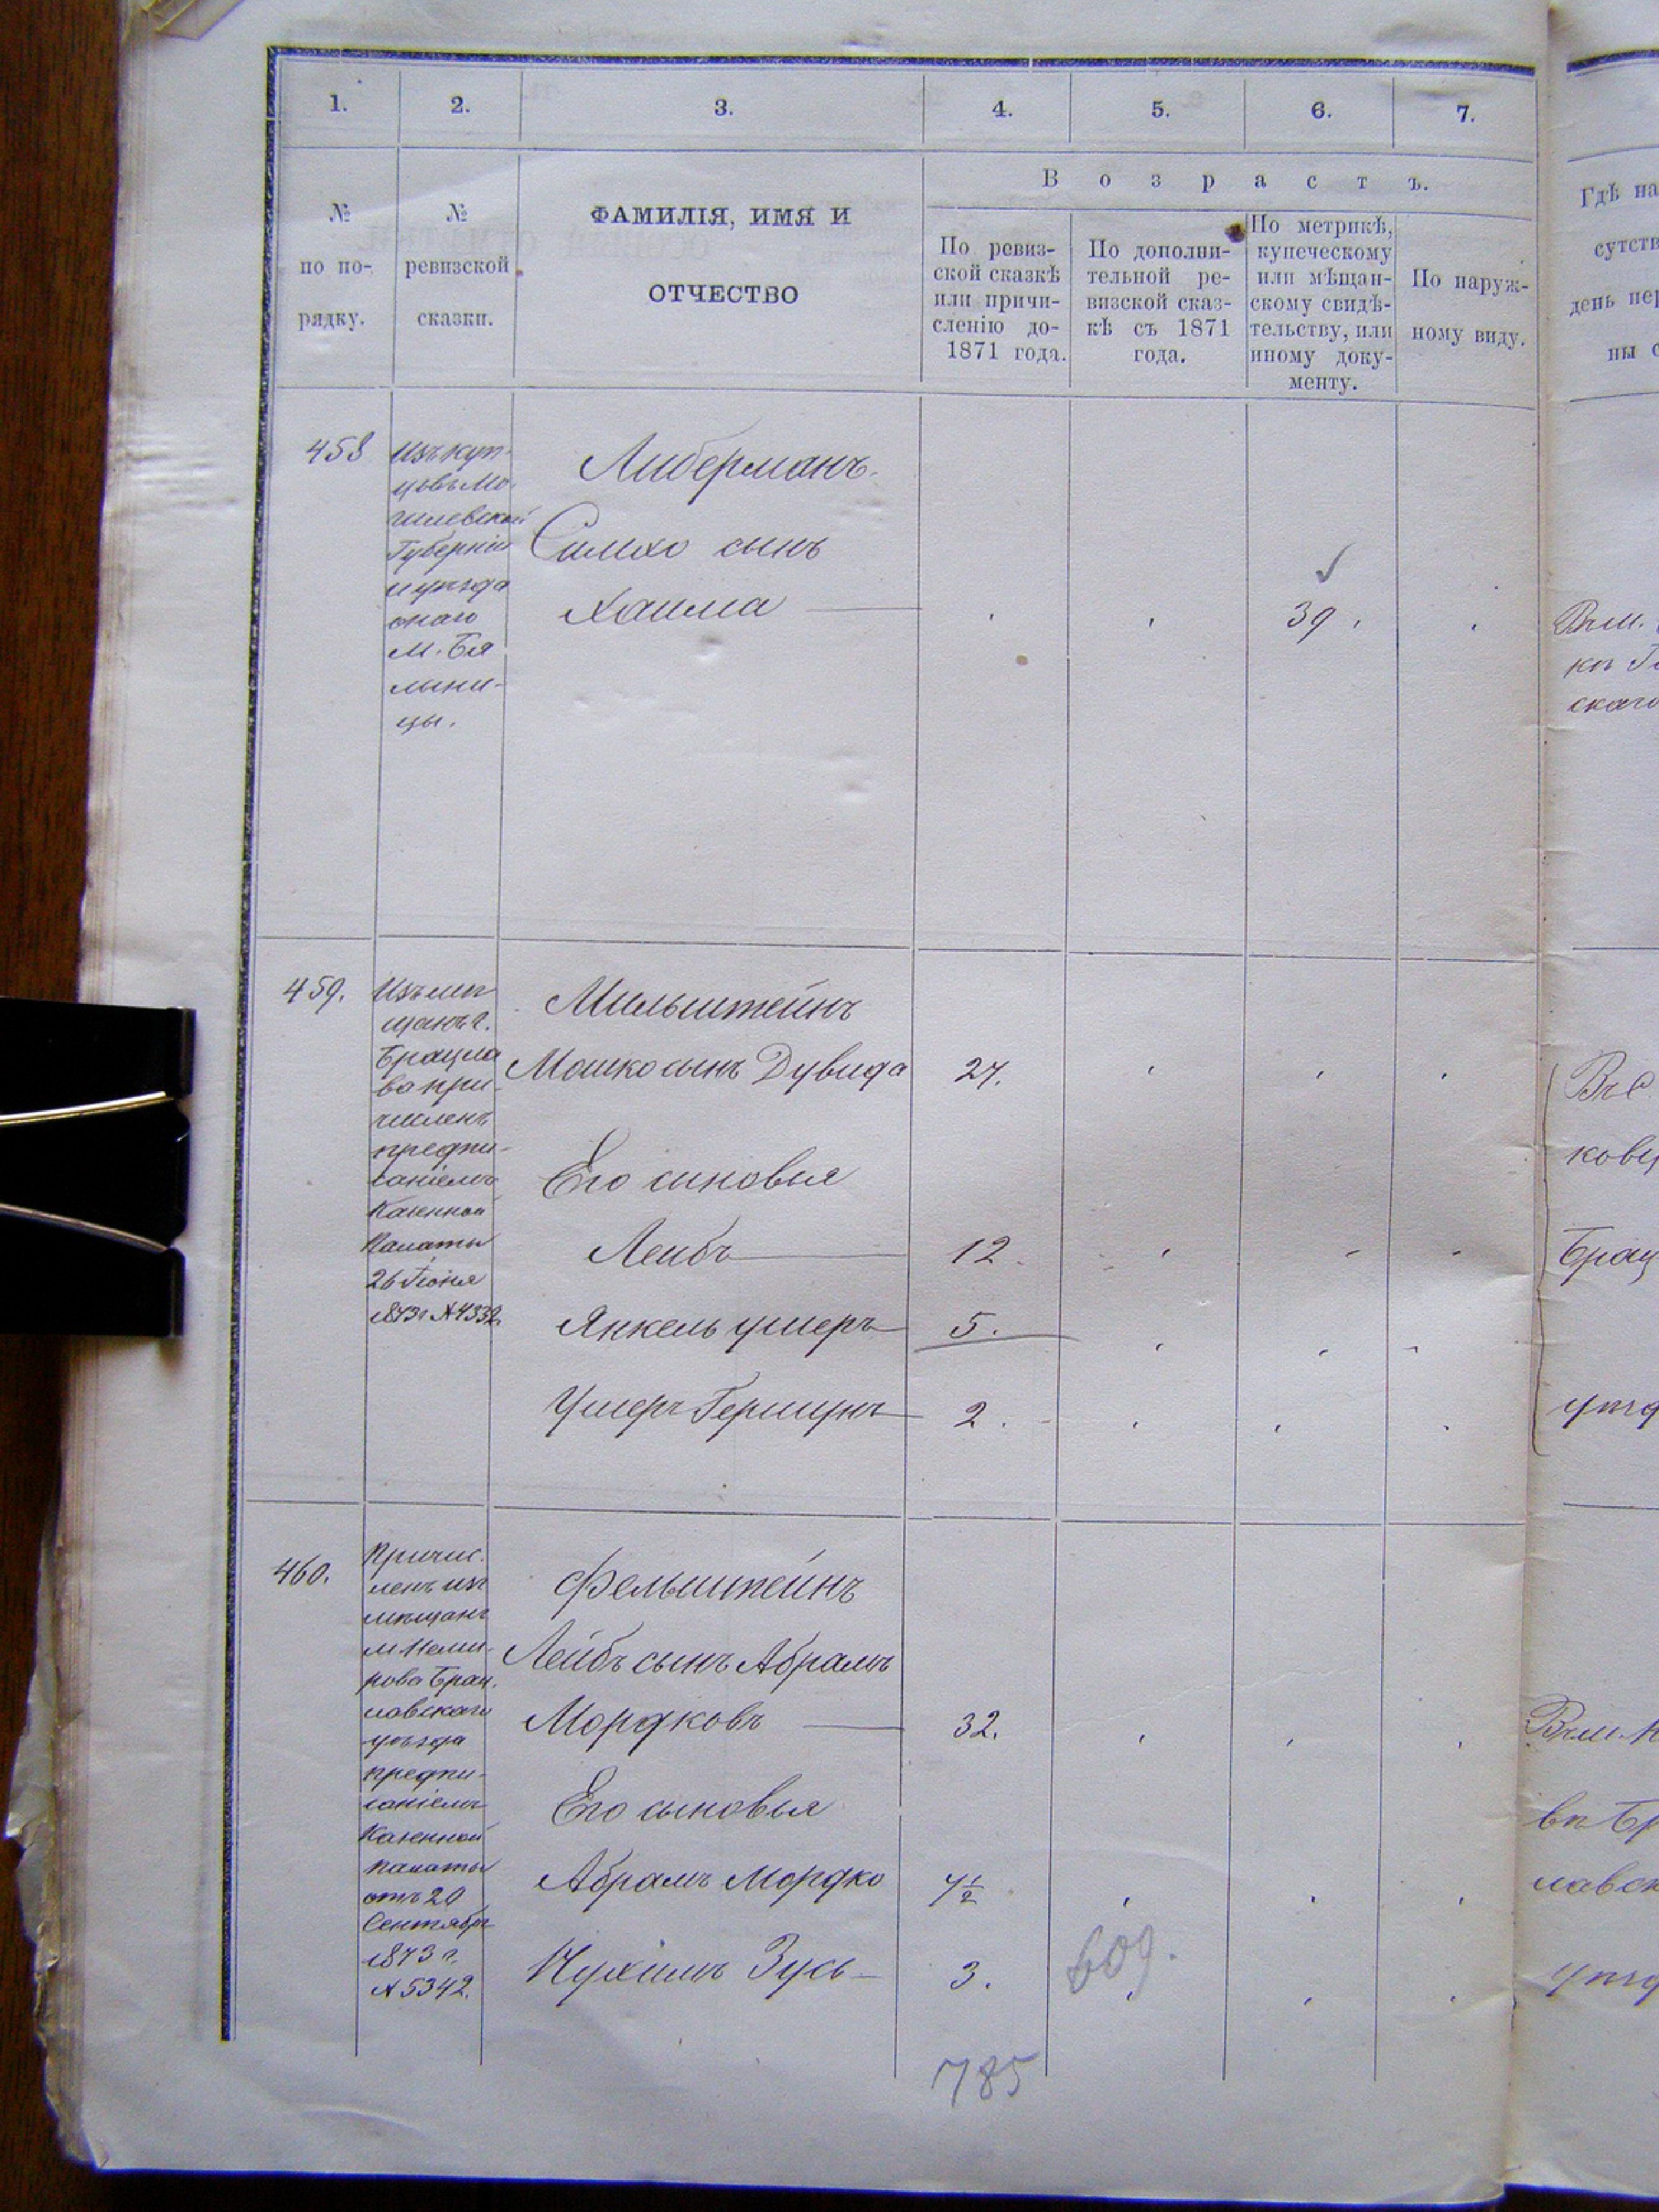 1. 2. 3. 4. 5. 6. 7.
№ по по-рядку.
№ ревизской сказки.
ФАМИЛІЯ, ИМЯ И
ОТЧЕСТВО
Возрастъ.
По ревиз-
ской сказкѣ
или причи-
сленію до-
1871 года.
По дополни-
тельной ре-
визской сказ-
кѣ съ 1871
года.
По метрикѣ,
купеческому
или мѣщан-
скому свидѣ-
тельству, или
иному доку-
менту.
По наруж-
ному виду.
Гдѣ на
сутств
день пер
ны с
458
Изъ куп-
цовъ Мо-
гилевской
Губерніи
и уѣзда
онаго
м. Бя
лыни-
цы.
Либерманъ
Симхо сынъ
Хаима
39
Въ м.
скаго
459.
Изъ мѣ
щанъ г.
Брацла
ва при
численъ
предпи-
саніемъ
Казенной
Палаты
26 Іюня
1873 г № 4332
Мильштейнъ
Мошко сынъ Дувида 27.
Его сыновья
Лейбъ 12.
Янкель умеръ 5.
Умеръ Гершунъ 2.
Въ с
кову
Брац
уѣзд
460.
Причис-
ленъ изъ
мѣщанъ
м Неми-
рова Брац-
лавскаго
уѣзда
предпи-
саніемъ
Казенной
Палаты
отъ 20
Сентября
1873 г.
№ 5342.
Фельштейнъ
Лейбъ сынъ Абрамъ
Мордковъ 32.
Его сыновья
Абрамъ Мордко 7½
Нухимъ Зусь 3.
609.
785
Въ м. Н
въ Бр
лавск
уѣзд